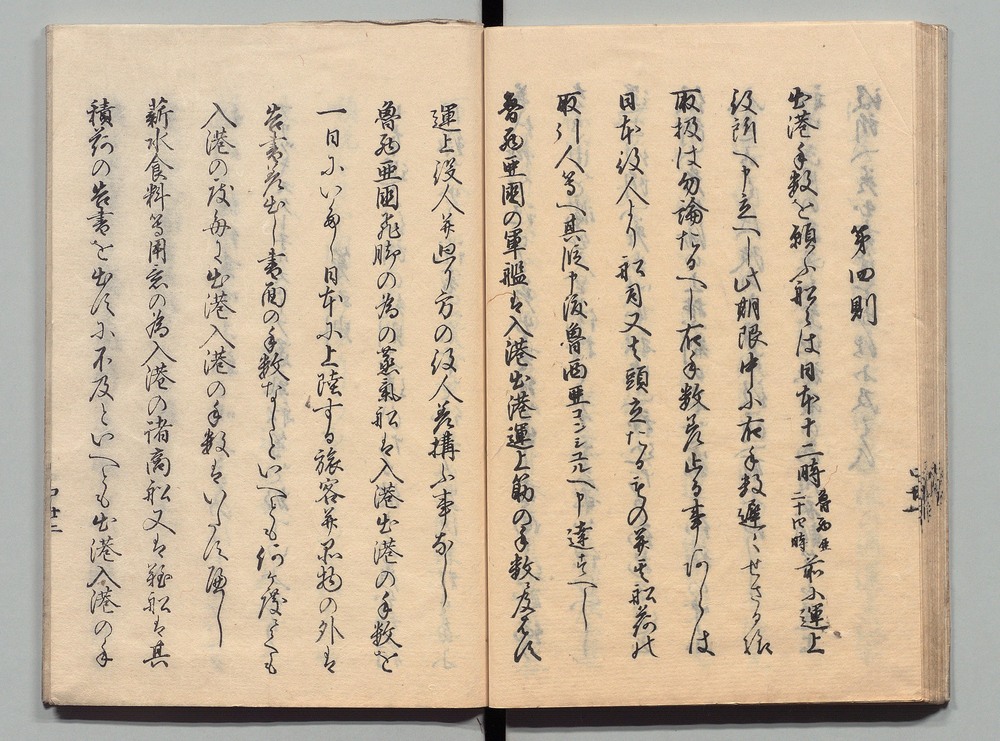 第四則
出港手数を願ふ船々は日本十二時魯西亜二十四時前に運上
役所へ申立へし此期限中に右手数遅々せさる様
取扱は勿論たるへし右手数差止る事あらは
日本役人より船司又は頭立たるもの并其船荷の
取引人等へ其段申渡魯西亜コンシユルへ申達すへし
魯西亜国の軍艦は入港出港運上筋の手数に及はす
運上役人并廻り方の役人差構ふ事なし
魯西亜国飛脚の為の蒸気船は入港出港の手数を
一日にいたし日本に上陸する旅客并品物の外は
告書差出し書面の手数なしといへとも何ヶ度にても
入港の度毎に出港入港の手数はいたす可し
薪水食料等用意の為入港の諸商船又は難船は其
積荷の告書を出すに不及といへとも出港入港の手